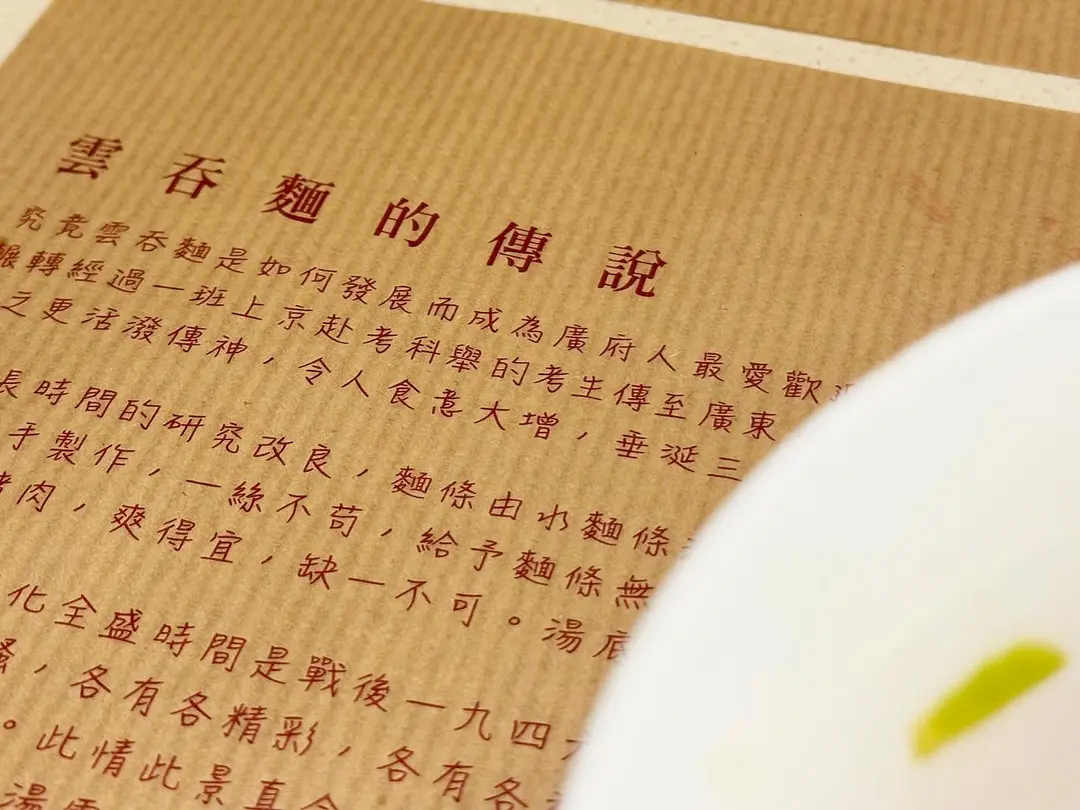 雲吞麵的傳說
究竟雲吞麵是如何發展而成為廣府人最愛歡
輾轉經過一班上京赴考科舉的考生傳至廣東
之更活潑傳神，令人食意大增，垂涎三
長時間的研究改良，麵條由水麵條
手製作，一絲不苟，給予麵條無
豬肉，爽得宜，缺一不可。湯底
化全盛時間是戰後一九四
，各有各精彩，各有各
。此情此景真令
湯